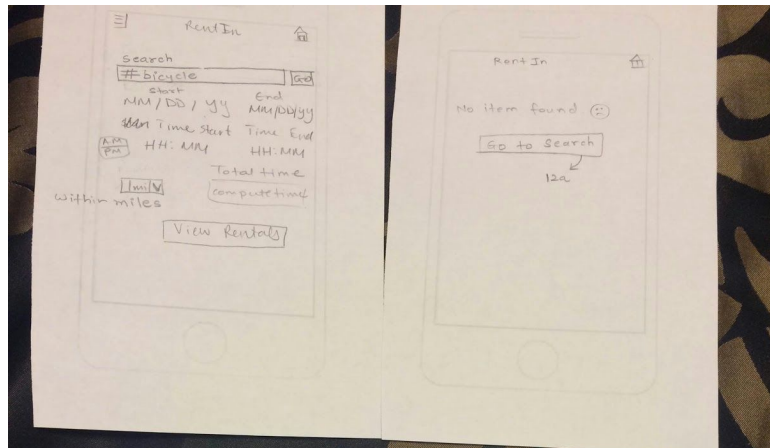 Rent In
search
# bicycle Go
start End
MM/DD/YY MM/DD/YY
Time Start Time End
AM
PM
HH:MM HH:MM
Total time
1mi V compute time
within miles
View Rentals
Rent In
No item found
Go to Search
12a